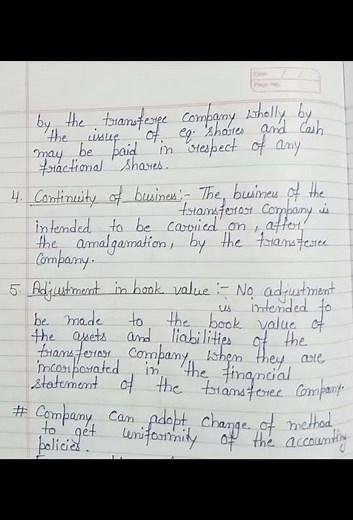 Date / /
Page No.
by the transferee company wholly by
the issue of eq. shares and cash
may be paid in respect of any
fractional shares.
4. Continuity of business:- The business of the
transferor company is
intended to be carried on, after
the amalgamation, by the transferee
company.
5. Adjustment in book value :- No adjustment
is intended to
be made to the book value of
the assets and liabilities of the
transferor company when they are
incorporated in the financial
statement of the transferee company.
# Company can adopt change of method
to get uniformity of the accounting
policies.